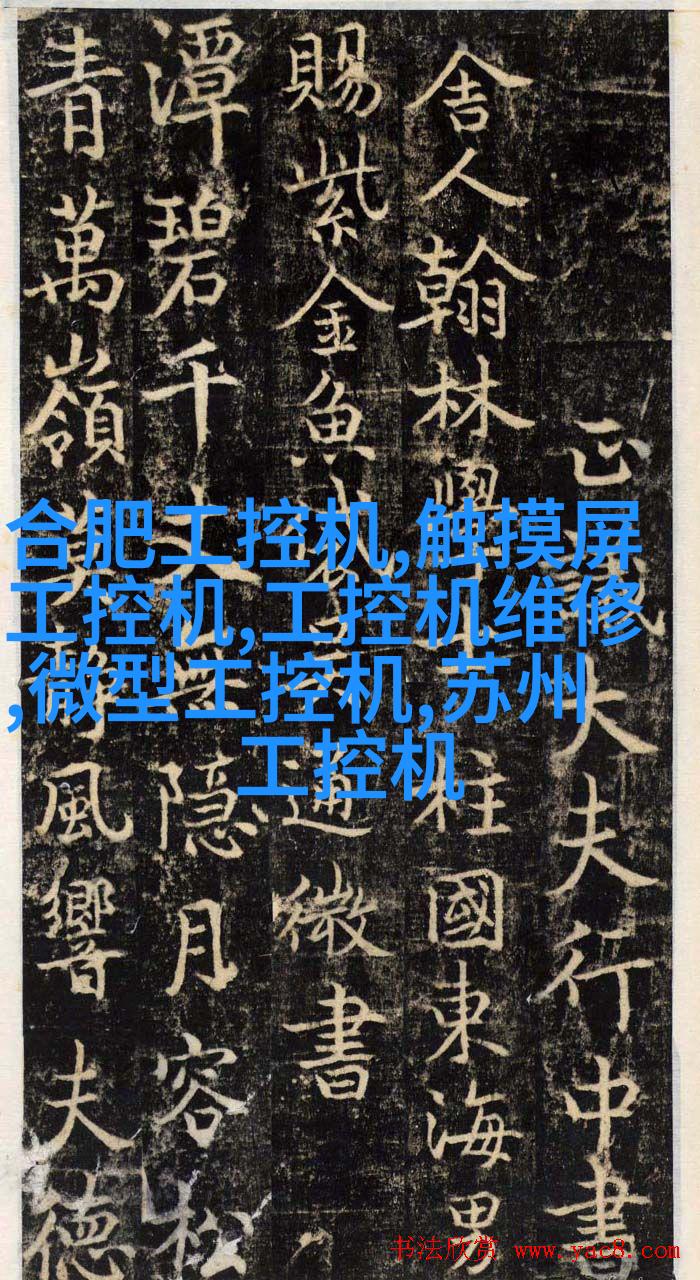 正議大夫行中書
舍人翰林學柱國東海男
賜紫金魚通微書
潭碧千丈隱月容松
青萬嶺風響夫德
合肥工控机,触摸屏
工控机,工控机维修
,微型工控机,苏州
工控机
书法欣赏 www.yac8.com